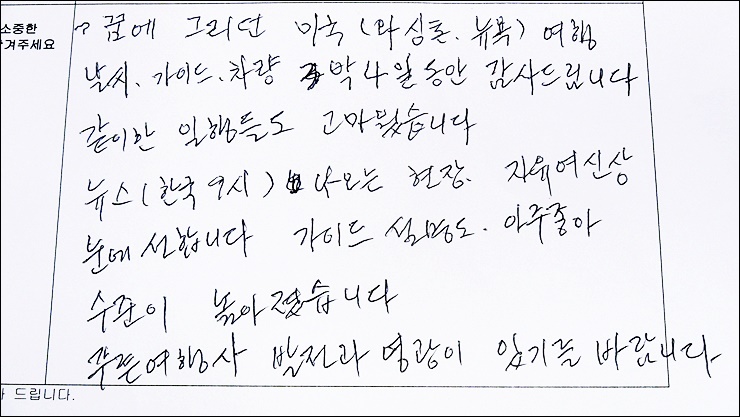 소중한
겨주세요
꿈에 그리던 미국 (와싱톤. 뉴욕) 여행
날씨. 가이드. 차량 3박 4일동안 감사드립니다
같이한 일행들도 고마웠습니다
뉴스 (한국 9시) 나오는 현장. 자유여신상
눈에 선합니다 가이드 설명도. 아주좋아
수준이 높아졌습니다
푸른여행사 발전과 영광이 있기를 바랍니다
드립니다.